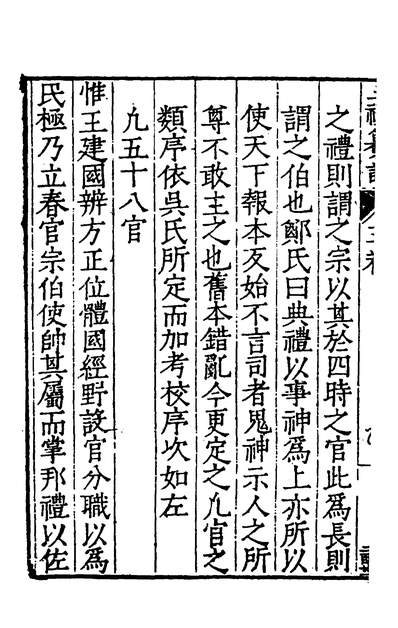 之禮則謂之宗以其於四時之官此爲長則
謂之伯也鄭氏曰典禮以事神爲上亦所以
使天下報本反始不言司者鬼神示人之所
尊不敢主之也舊本錯亂今更定之凡官之
類序依吳氏所定而加考校序次如左
凡五十八官
惟王建國辨方正位體國經野設官分職以爲
民極乃立春官宗伯使帥其屬而掌邦禮以佐